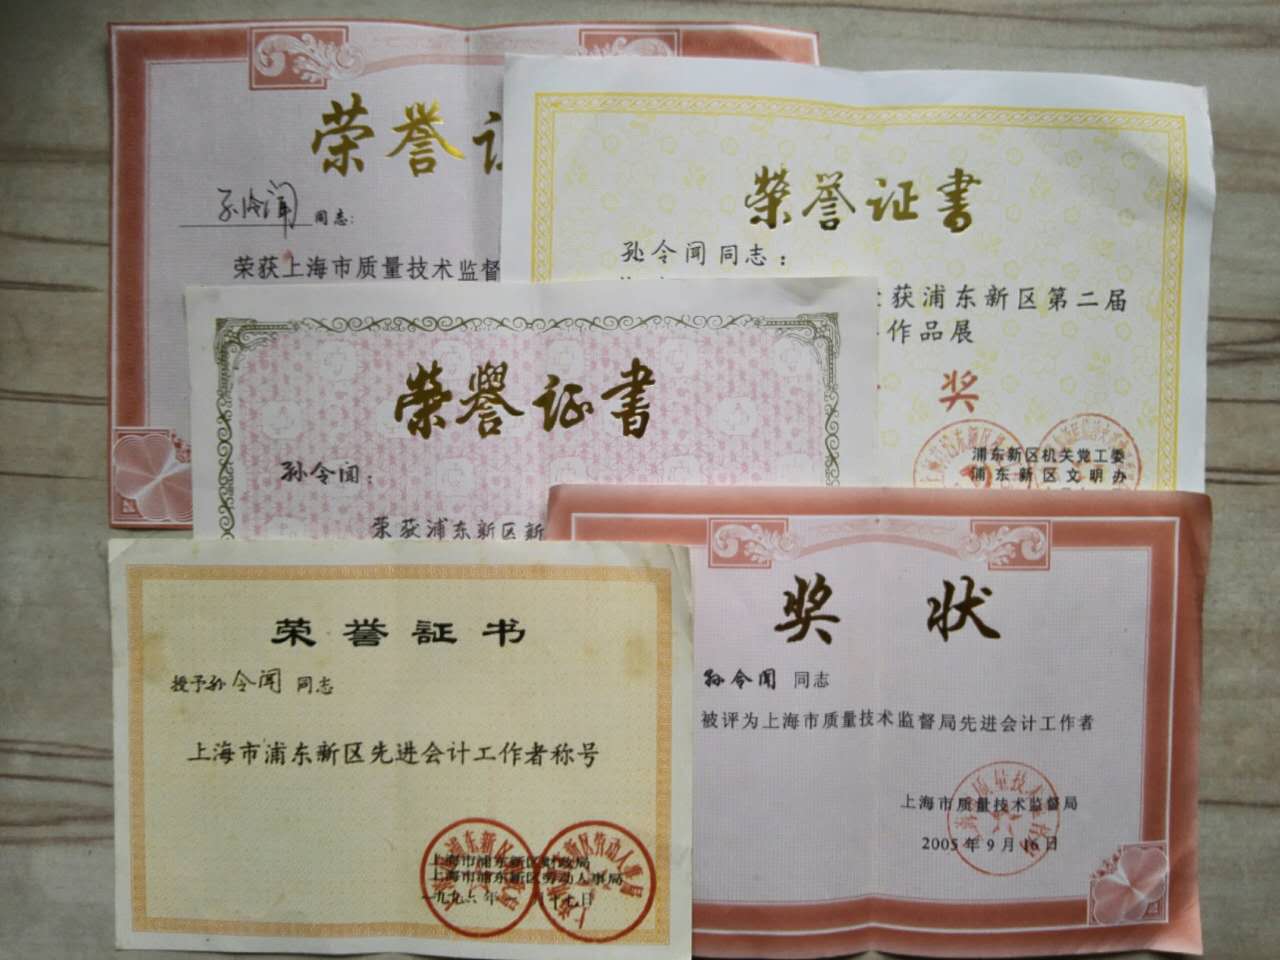 荣誉
孙令闻 同志：
荣获上海市质量技术监督
榮誉证書
孙令闻同志：
获浦东新区第二届
作品展
奖
浦东新区机关党工委
浦东新区文明办
榮譽证書
孙令闻：
荣获浦东新区新
荣誉証书
授予孙令闻 同志
上海市浦东新区先进会计工作者称号
上海市浦东新区财政局
上海市浦东新区劳动人事局
一九九六年
十七日
奖状
孙令闻 同志
被评为上海市质量技术监督局先进会计工作者
上海市质量技术监督局
2005年9月16日